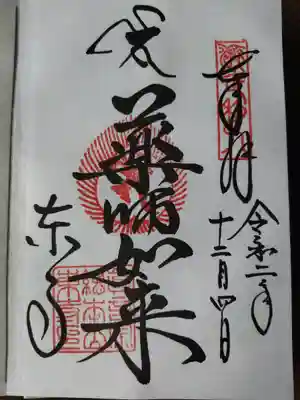 奉拝
令和二年
十二月四日
薬師如来
東寺